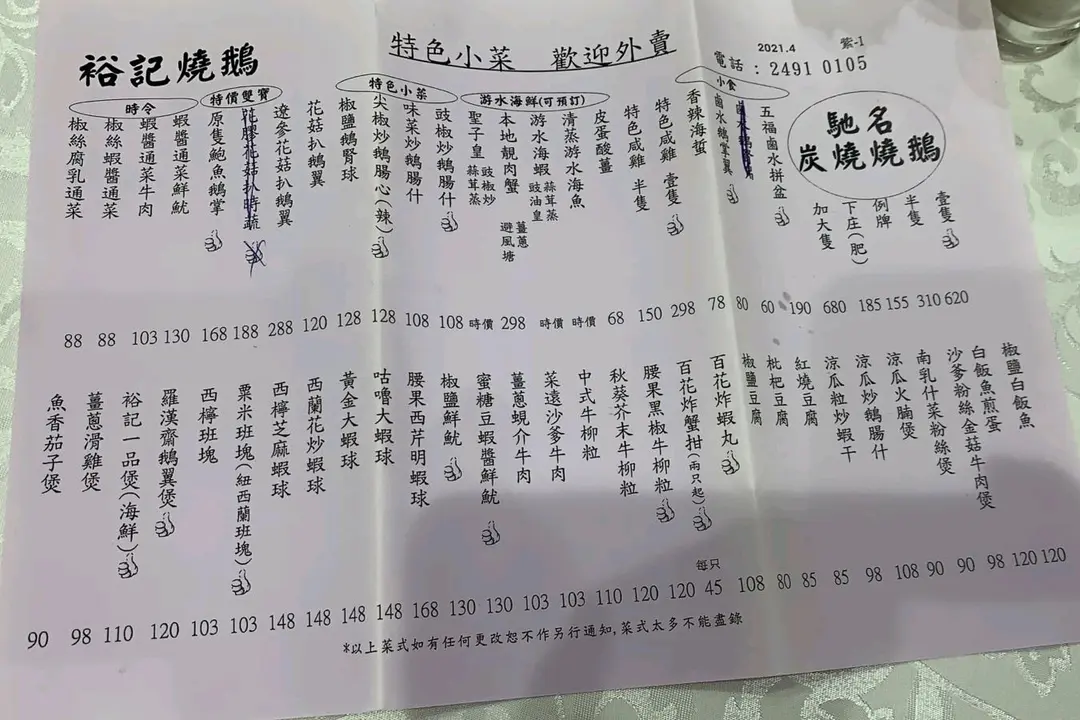 裕記燒鵝
特色小菜 歡迎外賣
2021.4 紫-1
電話：2491 0105
馳名
炭燒燒鵝
壹隻
半隻
例牌
下庄(肥)
加大隻
小食
五福鹵水拼盆
鹵水鵝掌翼
香辣海蜇
特色咸雞 壹隻
特色咸雞 半隻
皮蛋酸薑
游水海鮮(可預訂)
清蒸游水海魚
游水海蝦 蒜茸蒸 豉油皇
本地靚肉蟹 薑蔥 避風塘
聖子皇 豉椒炒 蒜茸蒸
特色小菜
豉椒炒鵝腸什
味菜炒鵝腸什
尖椒炒鵝腸心(辣)
椒鹽鵝腎球
花菇扒鵝翼
遼參花菇扒鵝翼
特價雙寶
花膠花菇扒時蔬
原隻鮑魚鵝掌
時令
蝦醬通菜鮮魷
蝦醬通菜牛肉
椒絲蝦醬通菜
椒絲腐乳通菜
88 88 103 130 168 188 288 120 128 128 108 108 時價 298 時價 時價 68 150 298 78 80 60 190 680 185 155 310 620
椒鹽白飯魚
白飯魚煎蛋
沙爹粉絲金菇牛肉煲
南乳什菜粉絲煲
涼瓜火腩煲
涼瓜炒鵝腸什
涼瓜粒炒蝦干
紅燒豆腐
枇杷豆腐
椒鹽豆腐
百花炸蝦丸
百花炸蟹拑(兩只起)
腰果黑椒牛柳粒
秋葵芥末牛柳粒
中式牛柳粒
菜遠沙爹牛肉
薑蔥蜆介牛肉
蜜糖豆蝦醬鮮魷
椒鹽鮮魷
腰果西芹明蝦球
咕嚕大蝦球
黃金大蝦球
西蘭花炒蝦球
西檸芝麻蝦球
粟米班塊(紐西蘭班塊)
西檸班塊
羅漢齋鵝翼煲
裕記一品煲(海鮮)
薑蔥滑雞煲
魚香茄子煲
每只
90 98 110 120 103 103 148 148 148 148 168 130 130 103 103 110 120 120 45 108 80 85 85 98 108 90 90 98 120 120
*以上菜式如有任何更改恕不作另行通知,菜式太多不能盡錄